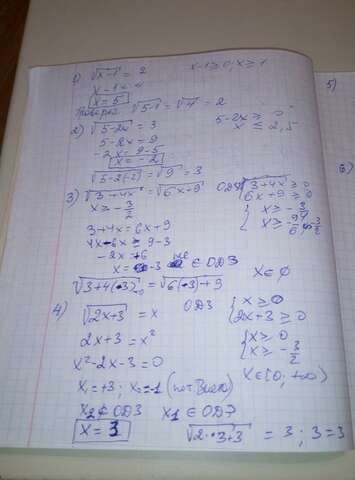 1) √x-1 = 2 x-1≥0; x≥1
x-1 = 4
x = 5
√5-1 = √4 = 2
2) √5-2x = 3 5-2x ≥ 0
5-2x = 9 x ≤ 2,5
-2x = 9-5
x = -2
√5-2(-2) = √9 = 3
3) √3+4x = √6x+9 ОДЗ {3+4x ≥ 0
6x+9 ≥ 0
x ≥ -3/2 {x ≥ -3/4
3+4x = 6x+9 x ≥ -9/6 = -3/2
4x-6x = 9-3
-2x = 6
x = -3 не ∈ ОДЗ
√3+4(-3) = √6(-3)+9 x∈∅
4) √2x+3 = x ОДЗ {x ≥ 0
2x+3 ≥ 0
2x+3 = x² {x ≥ 0
x ≥ -3/2
x²-2x-3=0
x₁=+3; x₂=-1 (по т. Виета) x∈[0; +∞)
x₂∉ОДЗ x₁∈ОДЗ
x = 3 √2·3+3 = 3; 3=3
5)
6)